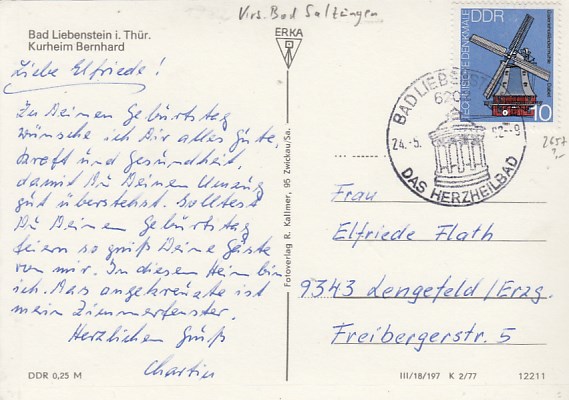 Vers. Bad Salzungen
Bad Liebenstein i. Thür.
Kurheim Bernhard
ERKA
Liebe Elfriede!
Zu Deinen Geburtstag
wünsche ich Dir alles Gute,
Kraft und Gesundheit
damit Du Deinen Umzug
gut überstehst. Solltest
Du Deinen Geburtstag
feiern so grüß Deine Gäste
von mir. In diesem Heim bin
ich. Das angekreuzte ist
mein Zimmerfenster.
Herzlichen Gruß
DDR 0,25 M
Fotoverlag R. Kallmer, 95 Zwickau/Sa.
TECHNISCHE DENKMALE
DDR
10
BAD LIEBENST
24.-5.
-9
DAS HERZHEILBAD
2657
Frau
Elfriede Flath
9343 Lengefeld/Erzg.
Freibergerstr. 5
III/18/197 K 2/77 12211